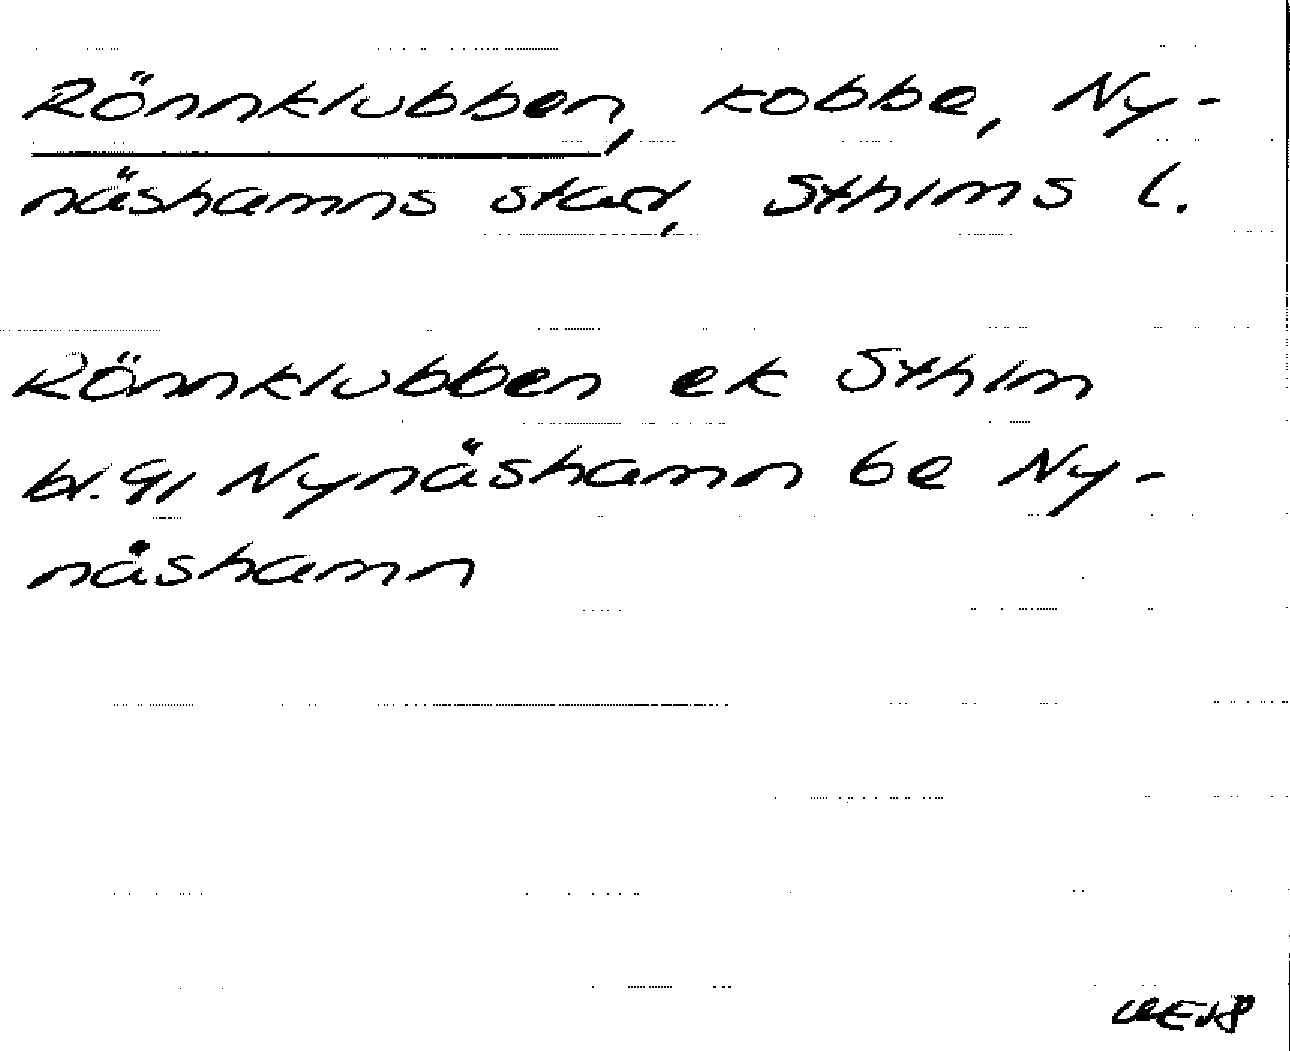 Rönnklubben, kobbe, Ny-
näshamns stad, Sthlms l.
Rönnklubben ek Sthlm
bl. 91 Nynäshamn be Ny-
näshamn